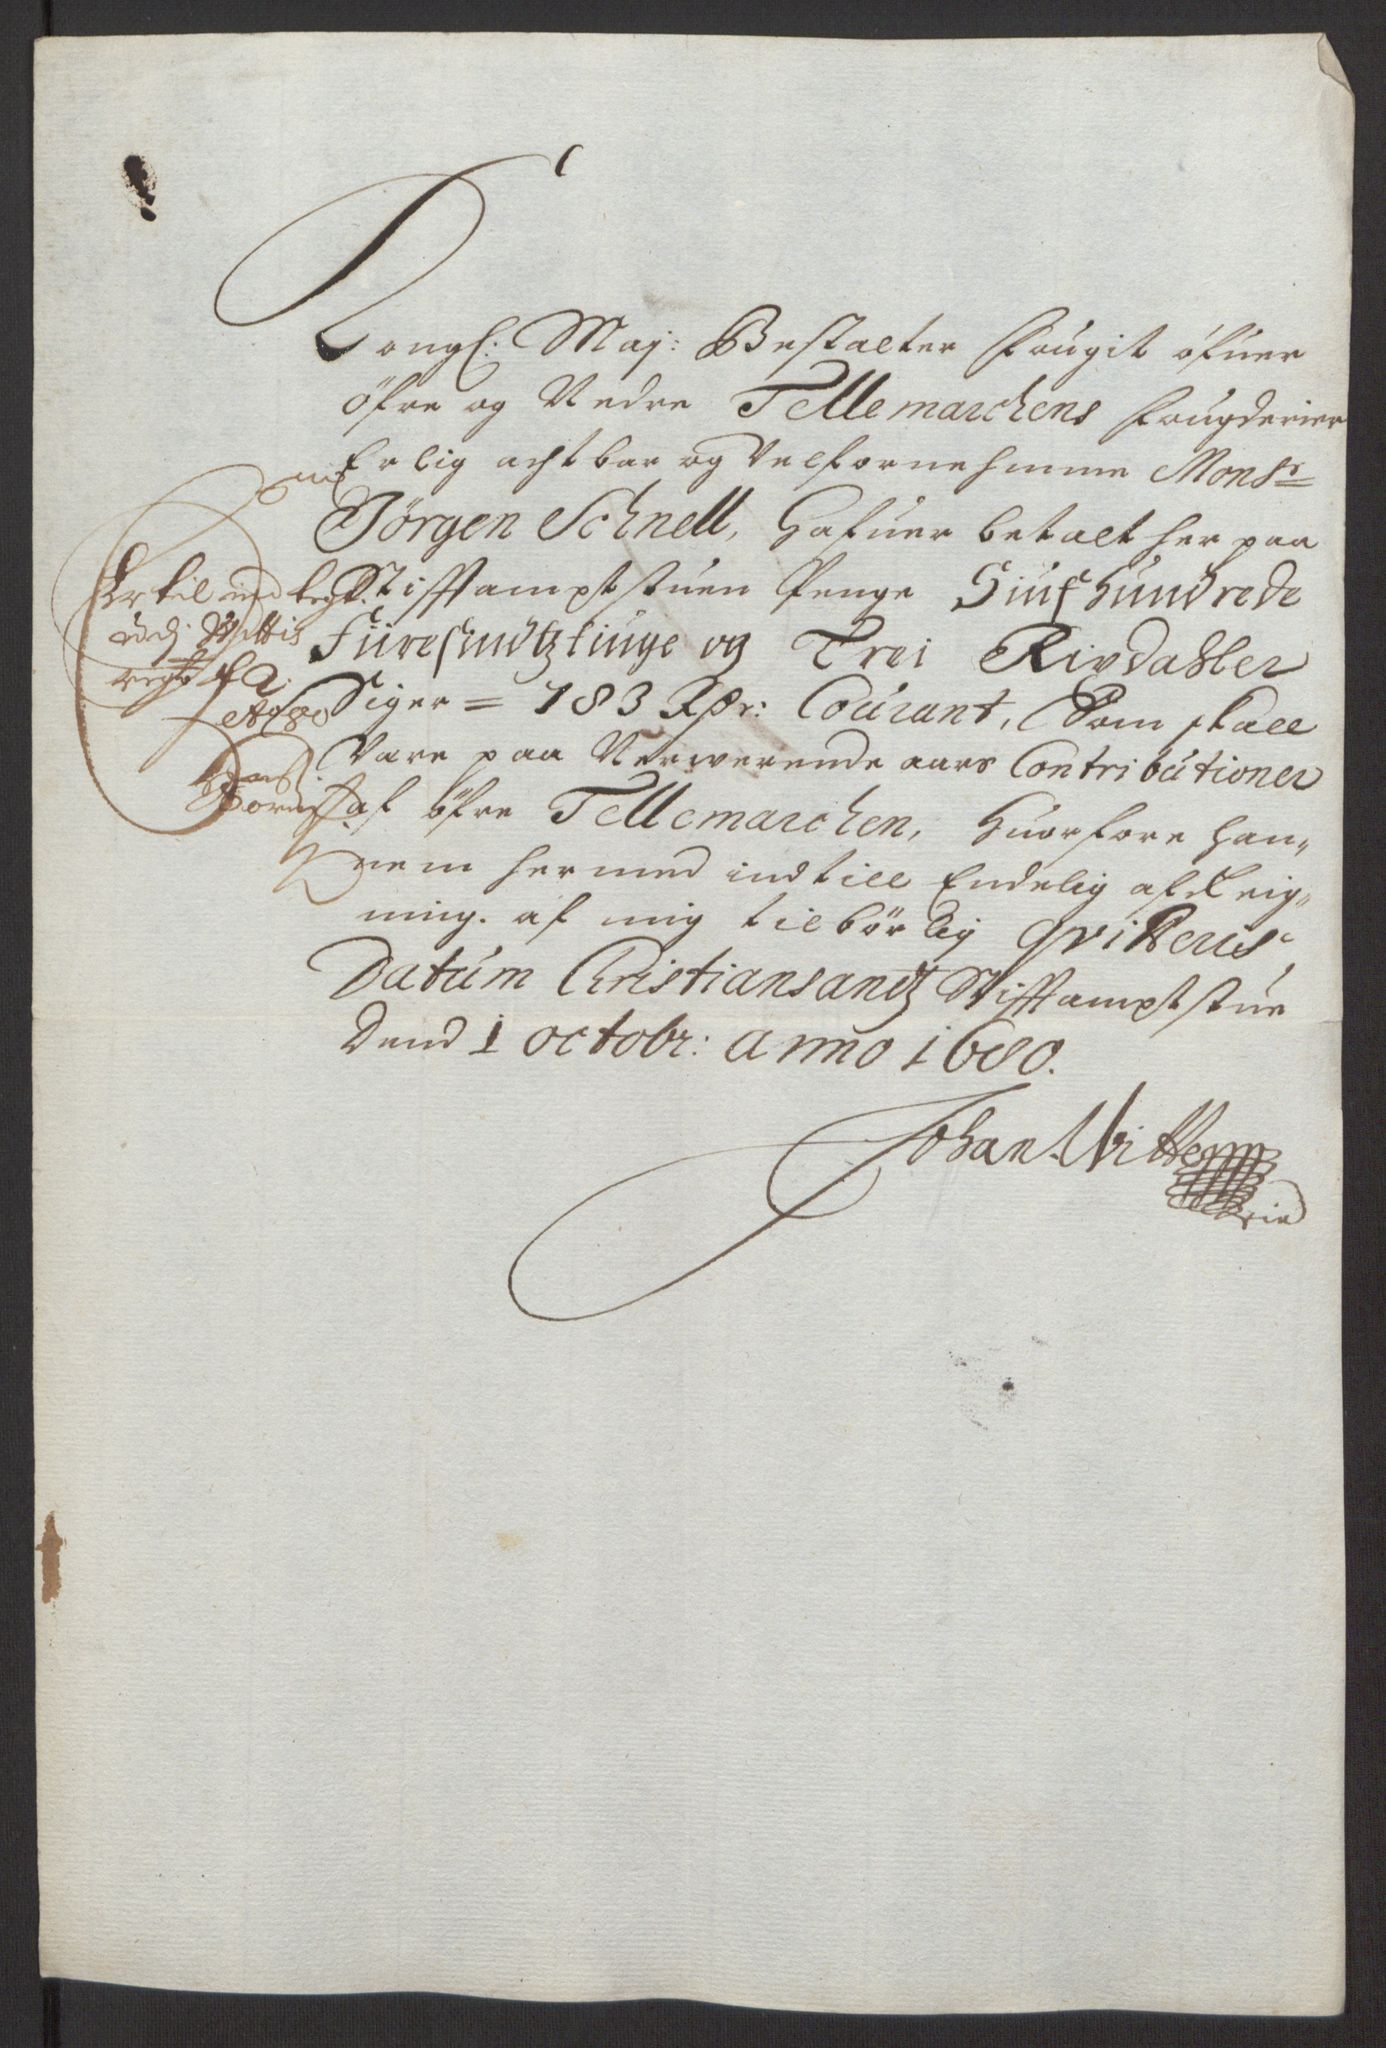 Kongl: May: Bestalter Fougit öfuer
öfre og Nedre Tellemarchens Fougderier
Erlig achtbar og Velfornehmme Monsr
Jörgen Schnell, Hafuer betalt her paa
Stifftamptstuen Penge Siuf Hundrede
Fiiresindtztiuge og Trei Rixdaller
Siger = 783 Rdr: Courant, Som skall
Vare paa Nerwerende aars Contributioner
af öfre Tellemarchen, Huorfore hand
nem hermed indtill Endelig afreig-
ning. af mig tilbörlig qviteris
Datum Christiansandtz Stifftamptstue
Dend 1 octobr: anno 1680.
Johan Witte
Er til